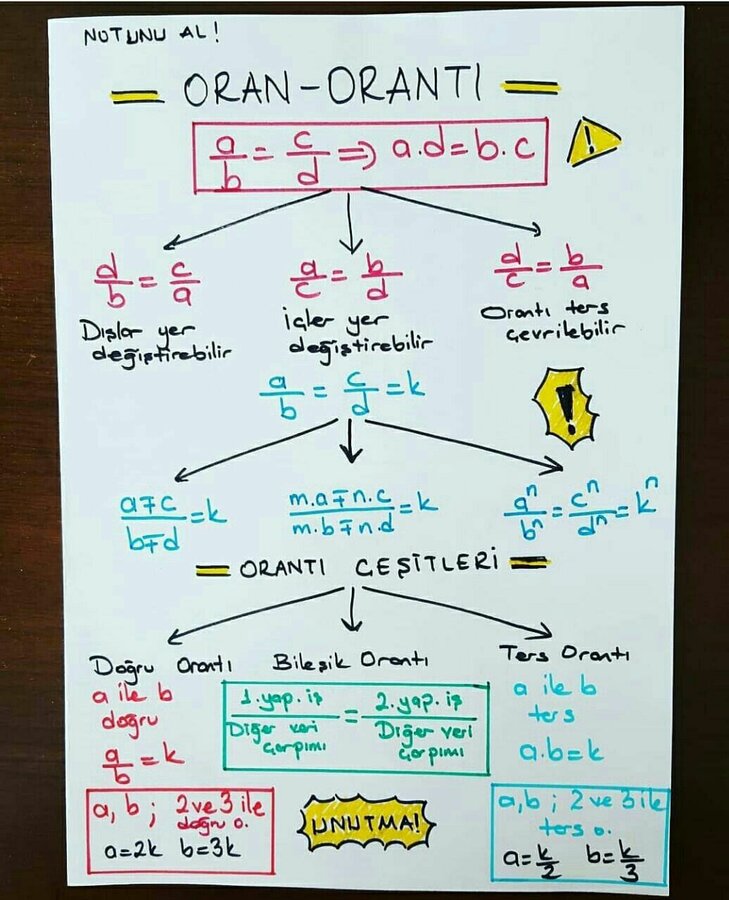 NOTUNU AL!
ORAN-ORANTI
a/b = c/d ⇒ a.d = b.c
!
d/b = c/a
Dışlar yer
değiştirebilir
a/c = b/d
İçler yer
değiştirebilir
d/c = b/a
Orantı ters
çevrilebilir
a/b = c/d = k
!
a∓c/b∓d = k
m.a∓n.c/m.b∓n.d = k
aⁿ/bⁿ = cⁿ/dⁿ = kⁿ
ORANTI ÇEŞİTLERİ
Doğru Orantı
a ile b
doğru
a/b = k
a, b ; 2 ve 3 ile
doğru o.
a=2k b=3k
Bileşik Orantı
1.yap.iş/Diğer veri çarpımı = 2.yap.iş/Diğer veri çarpımı
UNUTMA!
Ters Orantı
a ile b
ters
a.b=k
a,b ; 2 ve 3 ile
ters o.
a=k/2 b=k/3